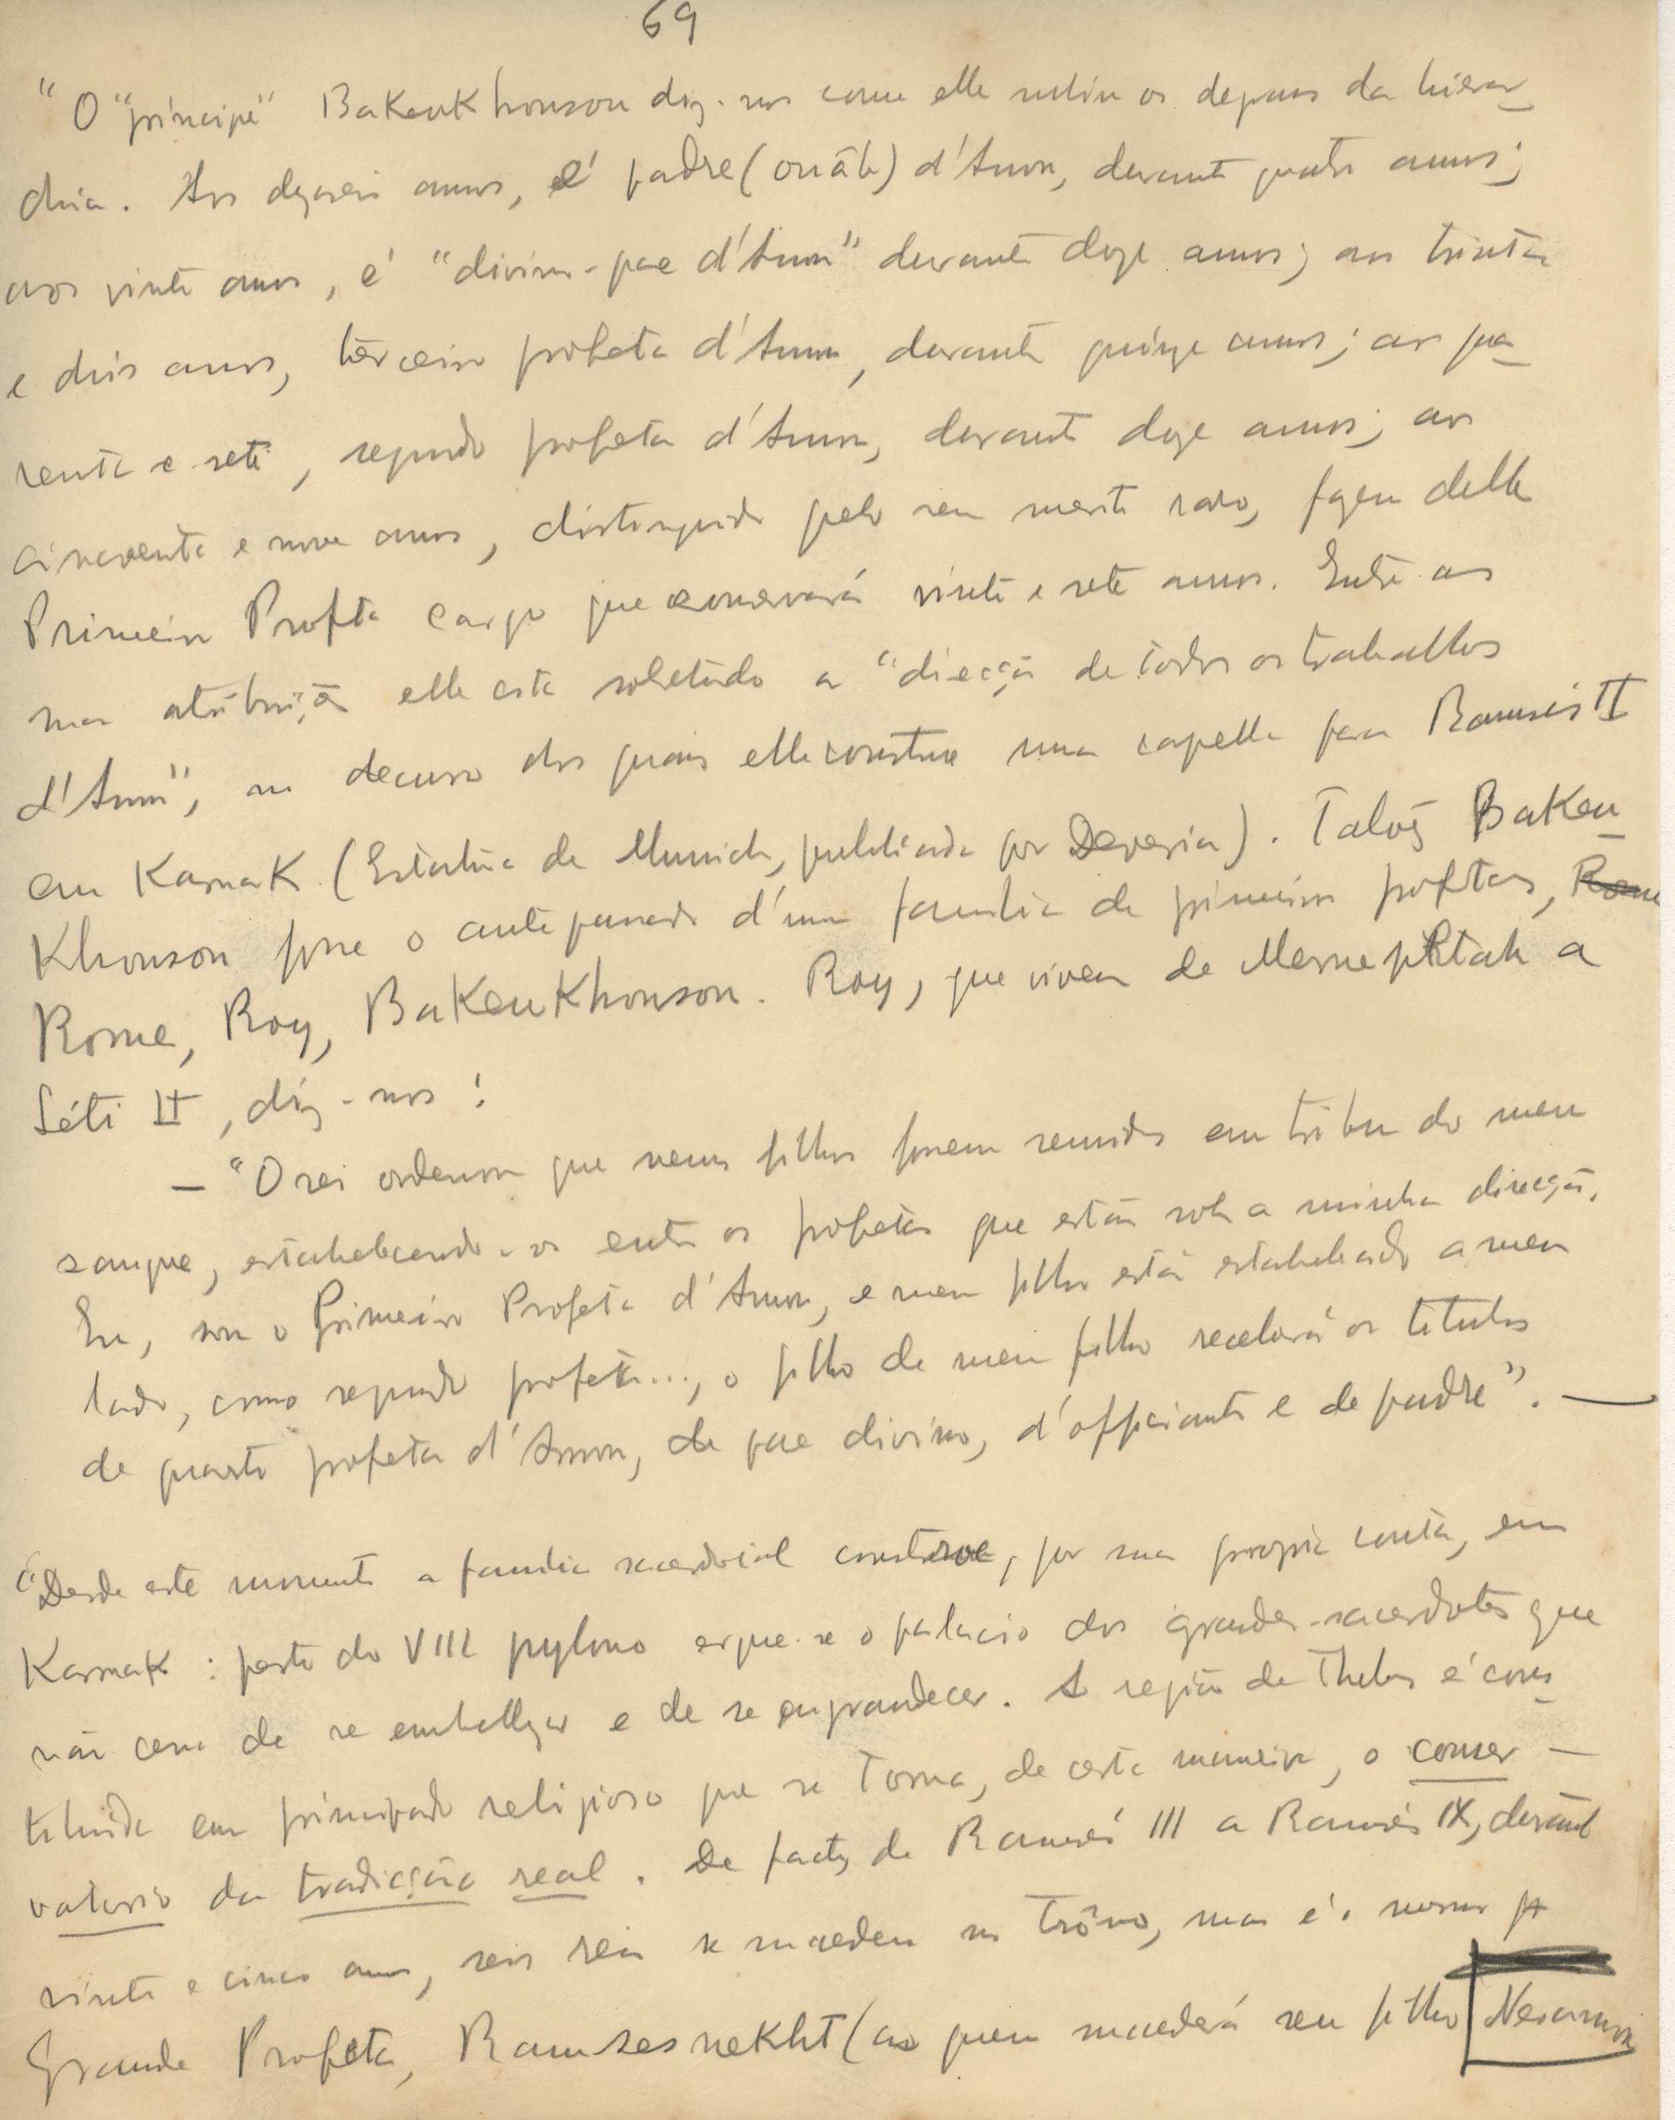 69
"O "principe" Bakenkhonson diz-nos como elle subiu os degraus da hierar-
chia. Aos dezaseis annos, é padre (ouâb) d'Amon, durante quatro annos;
aos vinte annos, é "divino-pae d'Amon" durante doze annos; aos trinta
e dois annos, terceiro profeta d'Amon, durante quinze annos; aos qua-
renta e sete, segundo profeta d'Amon, durante doze annos; aos
cincoenta e nove annos, distinguido pelo seu merito raro, fazem delle
Primeiro Profeta cargo que conservará vinte e sete annos. Entre as
suas atribuições elle cita sobretudo a "direcção de todos os trabalhos
d'Amon", no decurso dos quaes elle construe uma capella para Ramsés II
em Karnak (Estatua de Munich, publicada por Deveria). Talvez Baken-
Khonson fosse o antepassado d'uma familia de primeiros profetas, Rome
Rome, Roy, Bakenkhonson. Roy, que viveu de Merneptah a
Séti II, diz-nos:
— "O rei ordenou que meus filhos fossem reunidos em tribu do meu
sangue, estabelecendo-os entre os profetas que estão sob a minha direcção.
Eu, sou o Primeiro Profeta d'Amon, e meu filho está estabelecido a meu
lado, como segundo profeta..., o filho de meu filho receberá os titulos
de quarto profeta d'Amon, de pae divino, d'officiante e de padre". —
"Desde este momento a familia sacerdotal construe, por sua propria conta, em
Karnak: perto do VIII pylono ergue-se o palacio dos grandes-sacerdotes que
não cessa de se embellezar e de se engrandecer. A região de Thebas é cons-
tituida em principado religioso que se torna, de certa maneira, o conser-
vatorio da tradicção real. De facto, de Ramsés III a Ramsés IX, durante
vinte e cinco annos, seis reis se succedem no trôno, mas é o mesmo
Grande Profeta, Ramsesnekht (ao quem succederá seu filho Nesamon